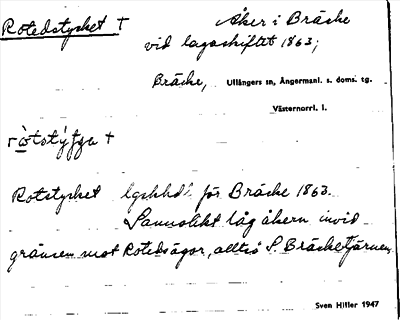 Rotedstycket † Åker i Bräcke
vid lagaskiftet 1863;
Bräcke, Ullångers sn, Ångermanl. s. doms. tg.
Västernorrl. l.
Rotstycket lgskhdl för Bräcke 1863.
Sannolikt låg åkern invid
gränsen mot Rotedsågor, alltså S. Bräcketjärnen
Sven Hiller 1947